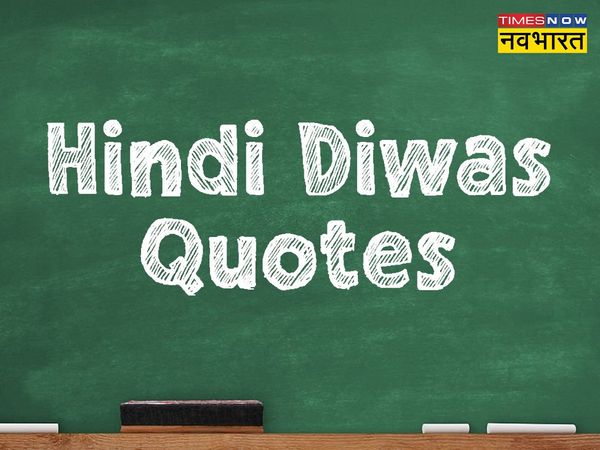 TIMES NOW
नवभारत
Hindi Diwas
Quotes